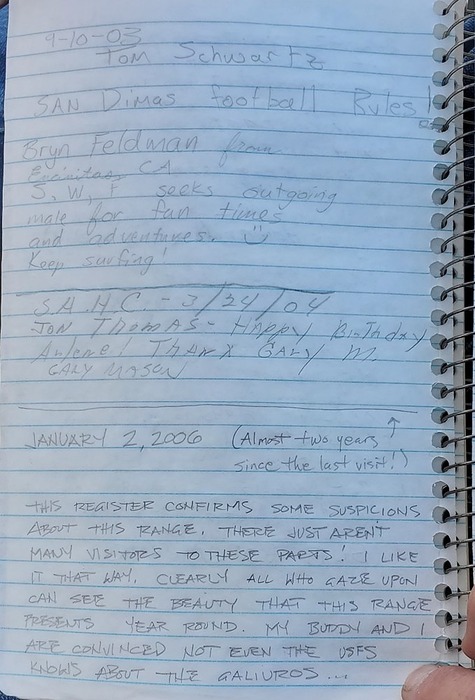 9-10-03
Tom Schwartz
SAN Dimas football Rules!
Bryn Feldman from
Encinitas, CA
S, W, F seeks outgoing
male for fun times
and adventures. :)
Keep surfing!
S.A.H.C. - 3/24/04
JON THOMAS - HAPPY BirThday
Arlene! THANX GARY M.
GARY MASON
JANUARY 2, 2006 (Almost two years ↑
since the last visit!)
THIS REGISTER CONFIRMS SOME SUSPICIONS
ABOUT THIS RANGE. THERE JUST AREN'T
MANY VISITORS TO THESE PARTS! I LIKE
IT THAT WAY. CLEARLY ALL WHO GAZE UPON
CAN SEE THE BEAUTY THAT THIS RANGE
PRESENTS YEAR ROUND. MY BUDDY AND I
ARE CONVINCED NOT EVEN THE USFS
KNOWS ABOUT THE GALIUROS...